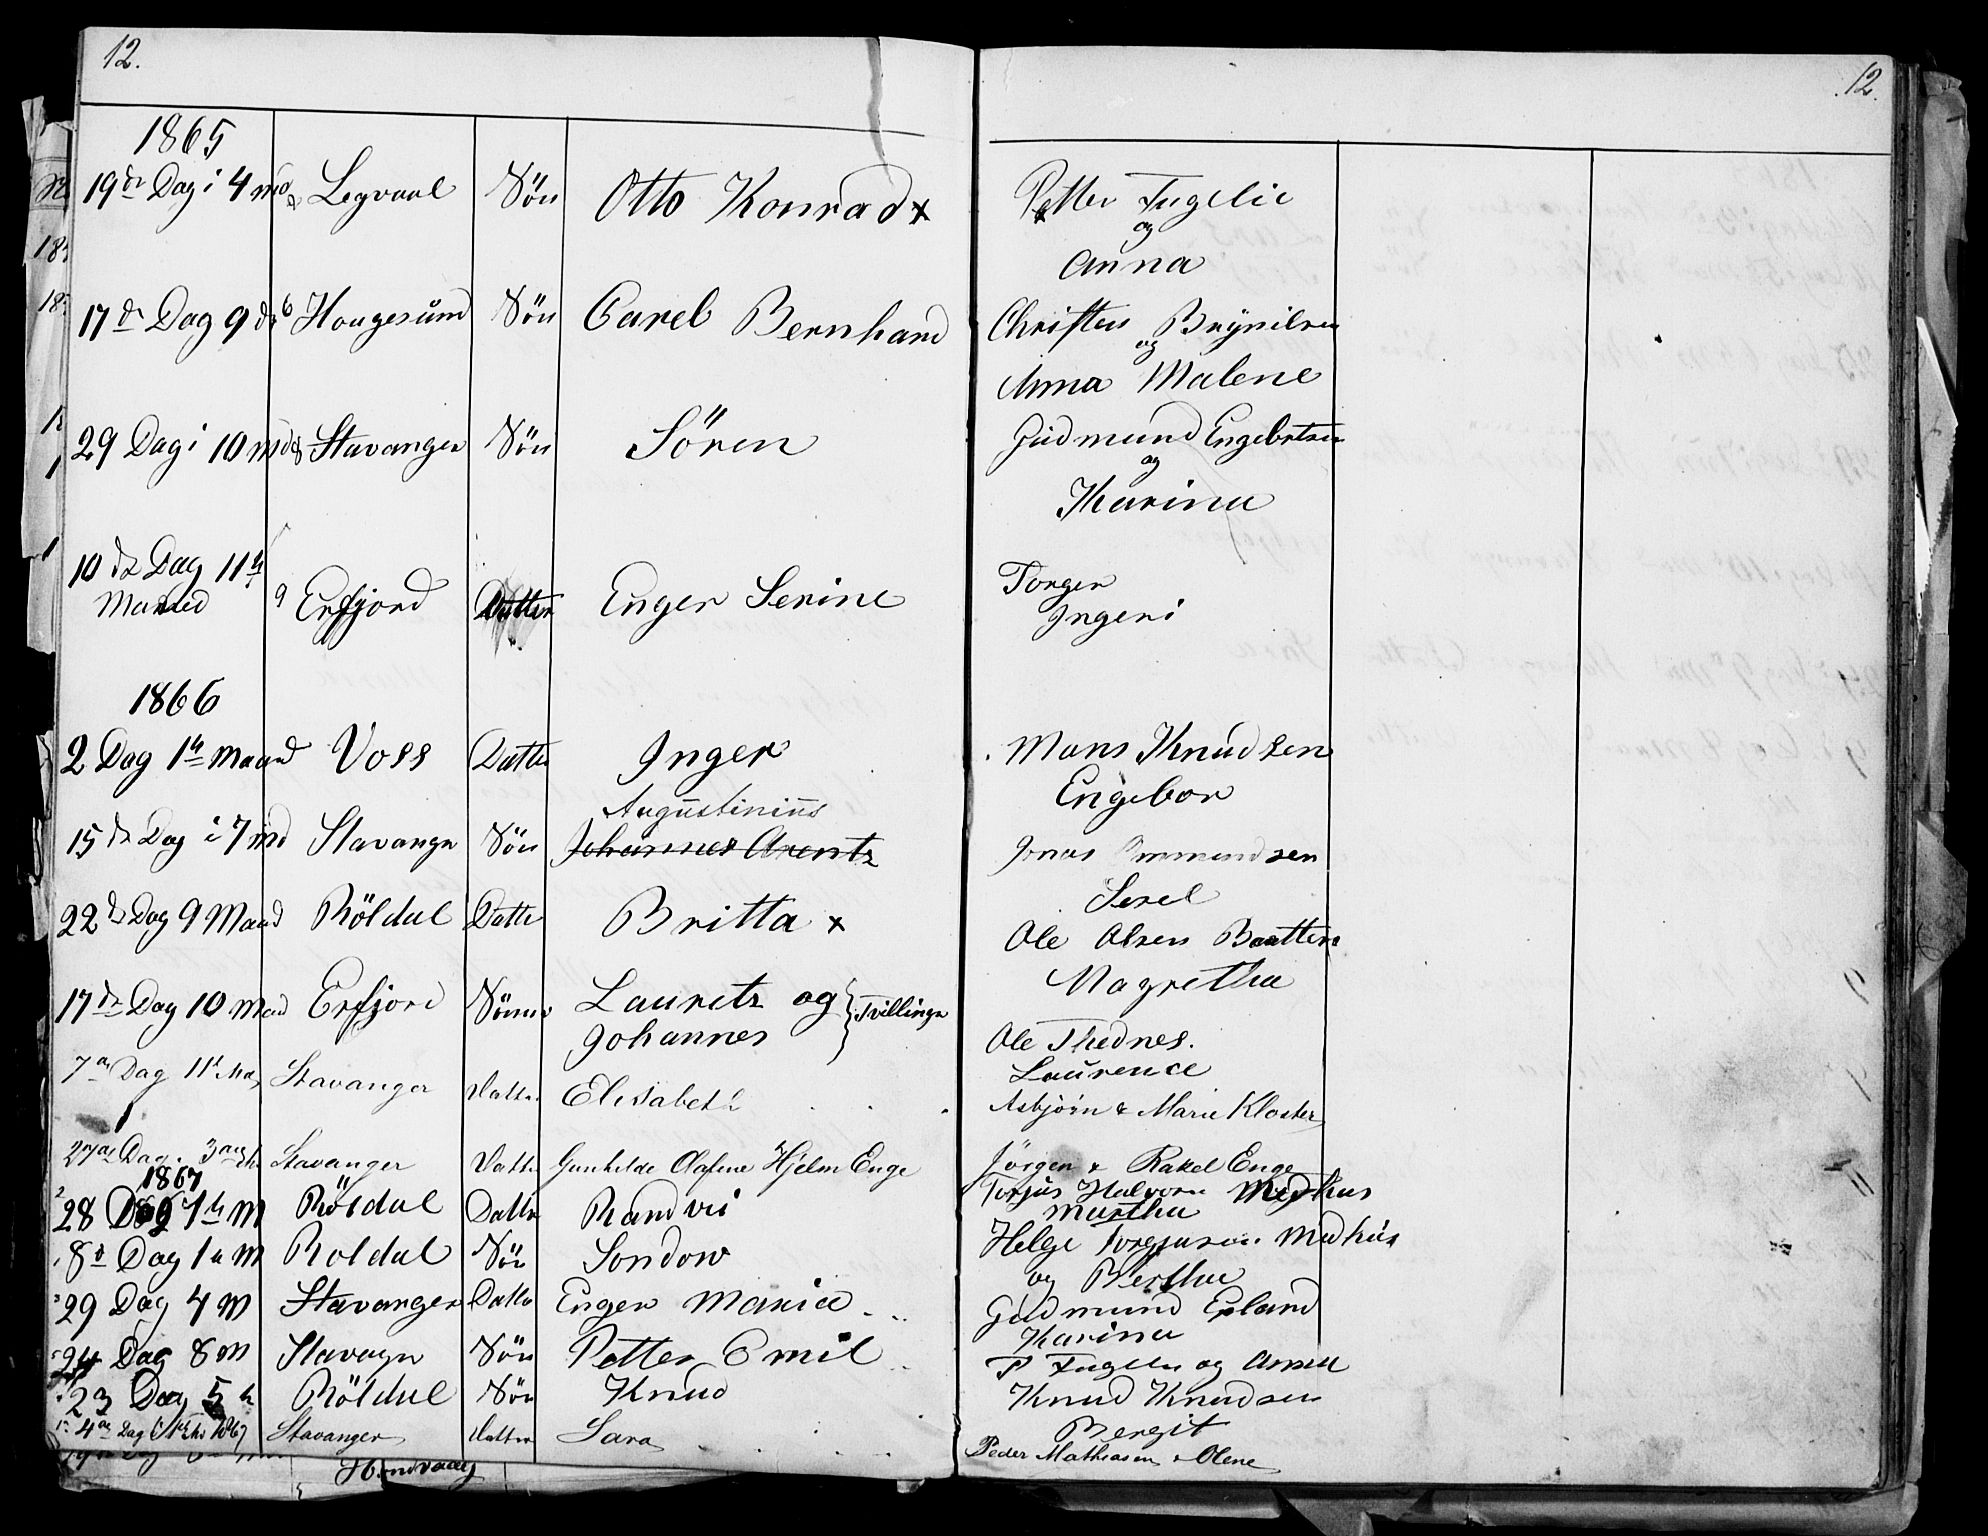 12.
12.
1865
19de Dag i 4 md Legvaal Sön Otto Konrad x Petter Fugelie
og
Anna
17de Dag 9 de 6 Hougesund Sön Carel Bernhard Christen Brynilsen
og
Anna Malene
29 Dag i 10 md 8 Stavanger Sön Sören Gudmund Engebretsen
og
Karina
10de Dag 11te
Maaned 9 Erfjord Datter Enger Serine Torger
Ingeri
1866
2 Dag 1te Maand Voss Datter Inger Mons Knudsen
Engebor
Augustinius
15de Dag i 7 md Stavanger Sön Johannes Arentz Jonas Ommundsen
Serel
22de Dag 9 Maand Röldal Datte Britta x Ole Olsen
Magretha
17de Dag 10 Maad Erfjord Sönner Lauretz og
Johannes Tvillinge Ole Thednes.
Laurence
7de Dag 11te Stavanger Datter Elisabeth Asbjörn & Marie Kloster
27de Dag 3die Stavanger Datter Gunhilde Olafine Hjelm Enge Jörgen & Rakel Enge
1867
28 Dag 1te M Röldal Datter Randvei Torjus Halvorn Medhus
Martha
8d Dag 1a M Roldal Sön Sondow Helge Torgjusen Medhus
og Bertha
29 Dag 4 M Stavanger Datter Enger Maria Gudmund Erland
Karina
24 Dag 8 M Stavagn Sön Petter Emil P Fugelie og Anna
23 Dag 5 Röldal Sön Knud Knud Knudsen
Bergit
4de Dag i 1867 Stavanger Datter Sara Peder Mathiasen & Olene